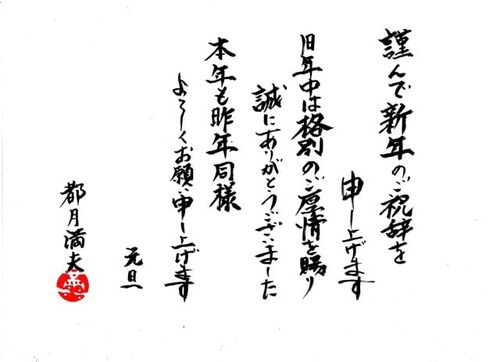 謹んで新年のご祝辞を
申し上げます
旧年中は格別のご厚情を賜り
誠にありがとうございました
本年も昨年同様
よろしくお願い申し上げます
元旦
都月満夫